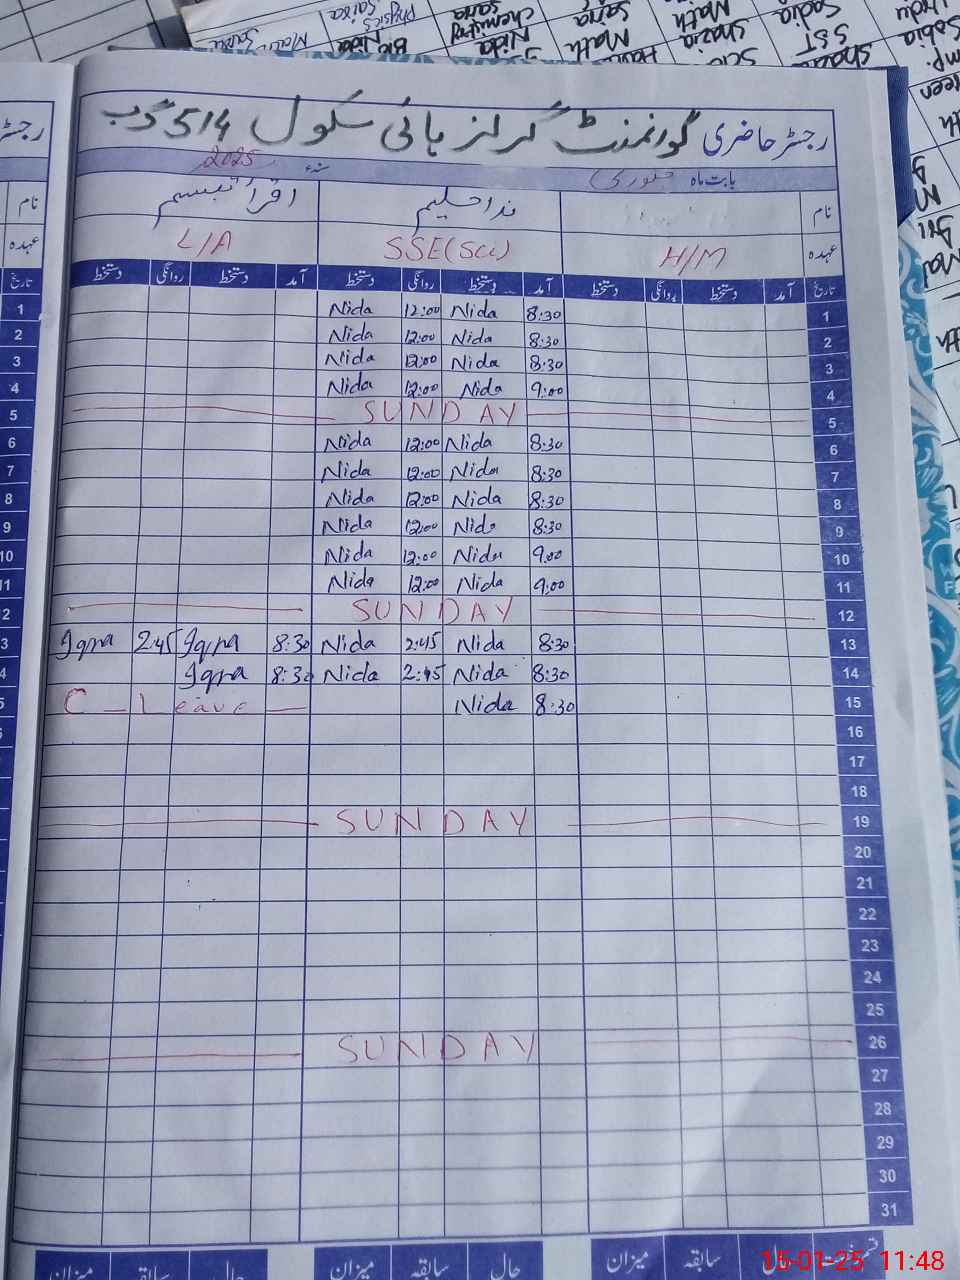 رجسٹر حاضری گورنمنٹ گرلز ہائی سکول 514 گ ب
بابت ماہ جنوری سنہ 2025
نام نداحلیم اقرا تبسم نام
عہدہ H/M SSE(Sci) L/A عہدہ
تاریخ آمد دستخط روانگی دستخط آمد دستخط روانگی دستخط آمد دستخط روانگی دستخط تاریخ
1 Nida 12:00 Nida 8:30 1
2 Nida 12:00 Nida 8:30 2
3 Nida 12:00 Nida 8:30 3
4 Nida 12:00 Nida 9:00 4
5 SUNDAY 5
6 Nida 12:00 Nida 8:30 6
7 Nida 12:00 Nida 8:30 7
8 Nida 12:00 Nida 8:30 8
9 Nida 12:00 Nida 8:30 9
10 Nida 12:00 Nida 9:00 10
11 Nida 12:00 Nida 9:00 11
2 SUNDAY 12
3 Iqra 2:45 Iqra 8:30 Nida 2:45 Nida 8:30 13
4 Iqra 8:30 Nida 2:45 Nida 8:30 14
5 C-Leave Nida 8:30 15
16
17
18
SUNDAY 19
20
21
22
23
24
25
SUNDAY 26
27
28
29
30
31
حال سابقہ میزان حال سابقہ میزان حال سابقہ میزان
15-01-25 11:48